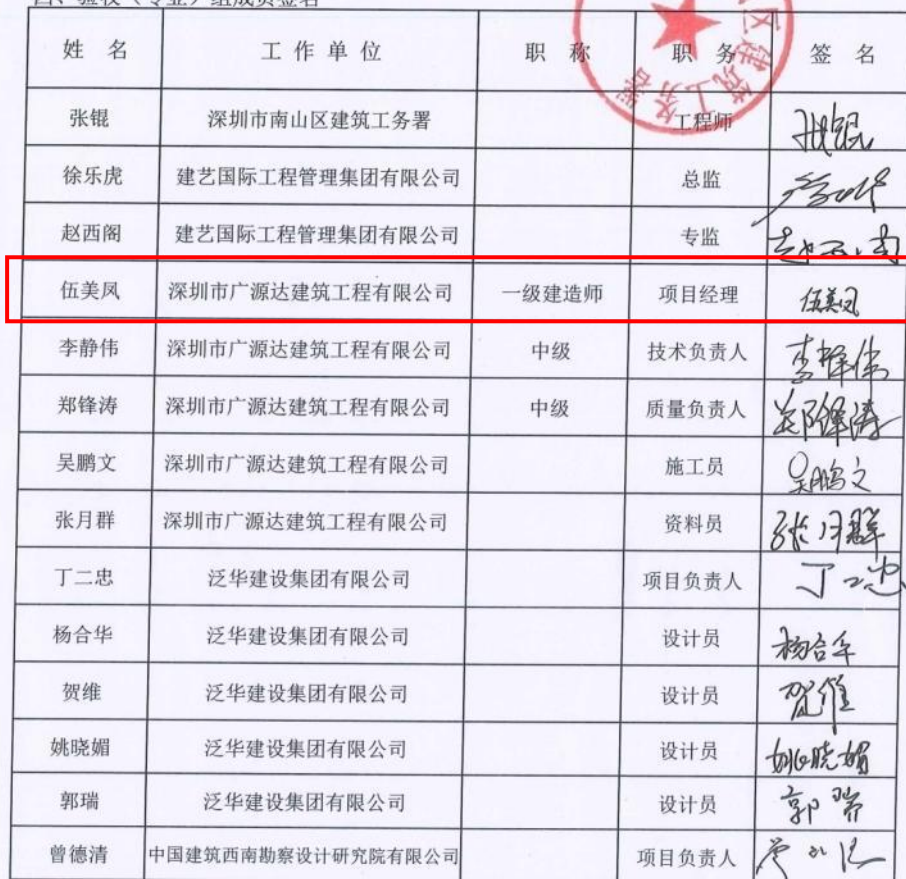 四、验收（专业）组成员签名
姓 名 工 作 单 位 职 称 职 务 签 名
张锟 深圳市南山区建筑工务署 工程师 张锟
徐乐虎 建艺国际工程管理集团有限公司 总监
赵西阁 建艺国际工程管理集团有限公司 专监 赵西阁
伍美凤 深圳市广源达建筑工程有限公司 一级建造师 项目经理 伍美凤
李静伟 深圳市广源达建筑工程有限公司 中级 技术负责人 李静伟
郑锋涛 深圳市广源达建筑工程有限公司 中级 质量负责人 郑锋涛
吴鹏文 深圳市广源达建筑工程有限公司 施工员 吴鹏文
张月群 深圳市广源达建筑工程有限公司 资料员 张月群
丁二忠 泛华建设集团有限公司 项目负责人 丁二忠
杨合华 泛华建设集团有限公司 设计员 杨合华
贺维 泛华建设集团有限公司 设计员 贺维
姚晓媚 泛华建设集团有限公司 设计员 姚晓媚
郭瑞 泛华建设集团有限公司 设计员 郭瑞
曾德清 中国建筑西南勘察设计研究院有限公司 项目负责人
区建筑工务署